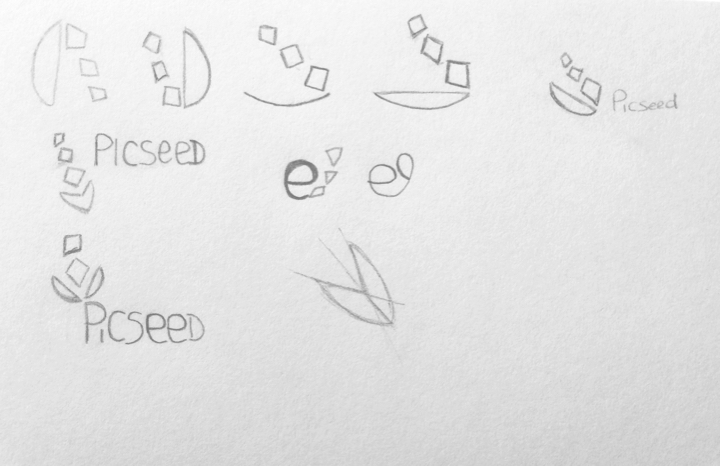 Picseed
PicseeD
e e
PicseeD